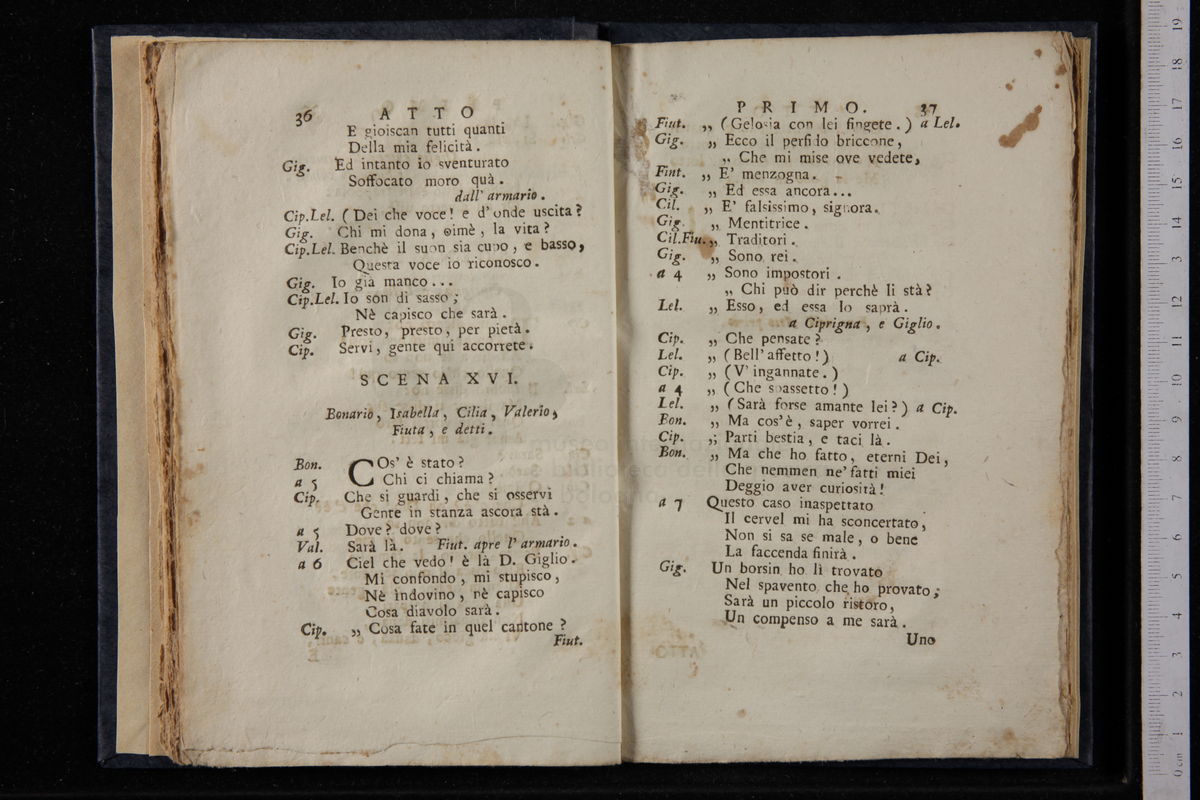 36 ATTO
E gioiscan tutti quanti
Della mia felicità.
Gig. Ed intanto io sventurato
Soffocato moro quà.
dall' armario.
Cip.Lel. (Dei che voce! e d'onde uscita?
Gig. Chi mi dona, oimè, la vita?
Cip.Lel. Benchè il suon sia cupo, e basso,
Questa voce io riconosco.
Gig. Io già manco...
Cip.Lel. Io son di sasso;
Nè capisco che sarà.
Gig. Presto, presto, per pietà.
Cip. Servi, gente qui accorrete.
SCENA XVI.
Bonario, Isabella, Cilia, Valerio,
Fiuta, e detti.
Bon. COs' è stato?
a 5 Chi ci chiama?
Cip. Che si guardi, che si osservi
Gente in stanza ascora stà.
a 5 Dove? dove?
Val. Sarà là. Fiut. apre l'armario.
a 6 Ciel che vedo! è là D. Giglio.
Mi confondo, mi stupisco,
Nè indovino, nè capisco
Cosa diavolo sarà.
Cip. „ Cosa fate in quel cantone?
Fiut.
PRIMO. 37
Fiut. „ (Gelosia con lei fingete.) a Lel.
Gig. „ Ecco il perfido briccone,
„ Che mi mise ove vedete,
Fint. „ E' menzogna.
Gig. „ Ed essa ancora...
Cil. „ E' falsissimo, signora.
Gig. „ Mentitrice.
Cil.Fiu. „ Traditori.
Gig. „ Sono rei.
a 4 „ Sono impostori.
„ Chi può dir perchè lì stà?
Lel. „ Esso, ed essa lo saprà.
a Ciprigna, e Giglio.
Cip. „ Che pensate?
Lel. „ (Bell'affetto!) a Cip.
Cip. „ (V'ingannate.)
a 4 „ (Che spassetto!)
Lel. „ (Sarà forse amante lei?) a Cip.
Bon. „ Ma cos'è, saper vorrei.
Cip. „ Parti bestia, e taci là.
Bon. „ Ma che ho fatto, eterni Dei,
Che nemmen ne' fatti miei
Deggio aver curiosità!
a 7 Questo caso inaspettato
Il cervel mi ha sconcertato,
Non si sa se male, o bene
La faccenda finirà.
Gig. Un borsin ho lì trovato
Nel spavento che ho provato;
Sarà un piccolo ristoro,
Un compenso a me sarà.
Uno